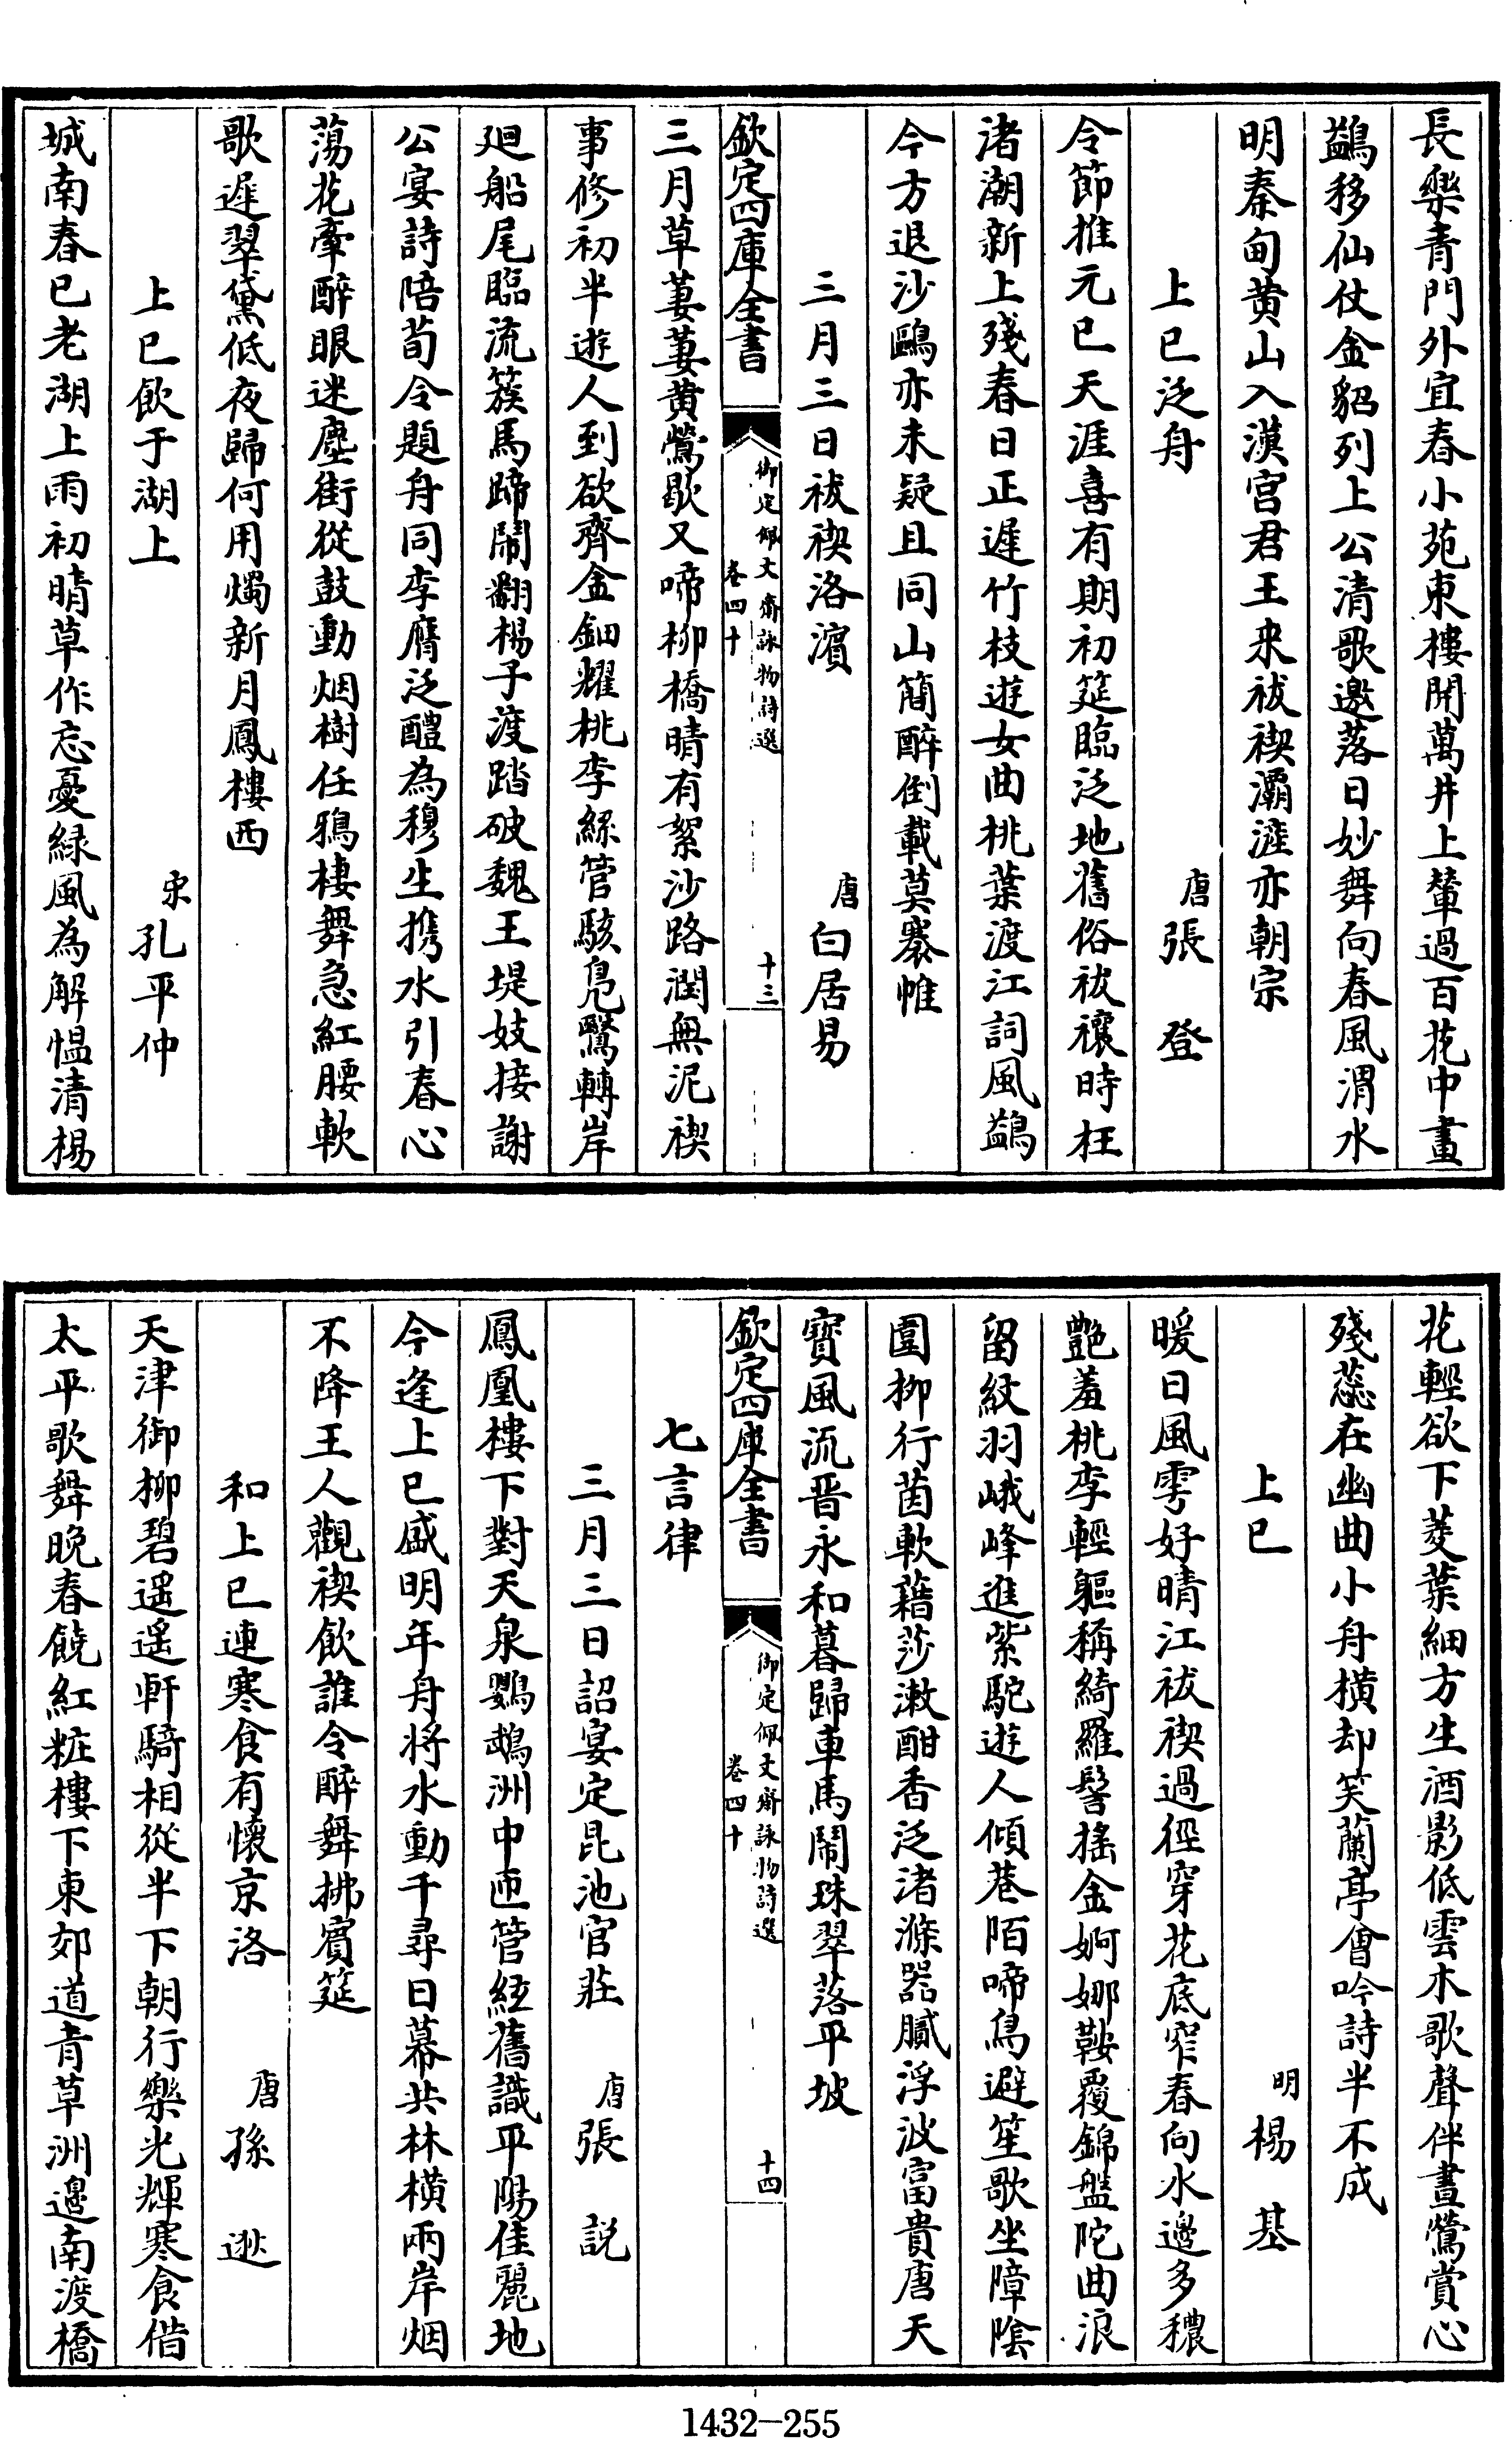 長樂青門外宜春小苑東樓開萬井上輦過百花中畫
鷁移仙仗金貂列上公清歌邀落日妙舞向春風渭水
明秦甸黄山入漢宫君王来祓禊灞滻亦朝宗
上巳泛舟 唐張登
令節推元巳天涯喜有期初筵臨泛地舊俗祓禳時枉
渚潮新上殘春日正遲竹枝遊女曲桃葉渡江詞風鷁
今方退沙鷗亦未疑且同山簡醉倒載莫褰帷
三月三日祓禊洛濱 唐白居易
欽定四庫全書 御定佩文齋詠物詩選 卷四十 十三
三月草萋萋黄鶯歇又啼柳橋晴有絮沙路潤無泥禊
事修初半遊人到欲齊金鈿耀桃李絲管駭鳧鷖轉岸
廻船尾臨流簇馬蹄鬧翻楊子渡踏破魏王堤妓接謝
公宴詩陪荀令題舟同李膺泛醴為穆生攜水引春心
蕩花牽醉眼迷塵街從鼓動烟樹任鴉棲舞急紅腰軟
歌遲翠黛低夜歸何用燭新月鳳樓西
上巳飲于湖上 宋孔平仲
城南春已老湖上雨初晴草作忘憂緑風為解愠清楊
花輕欲下菱葉細方生酒影低雲木歌聲伴晝鶯賞心
殘蕊在幽曲小舟横却笑蘭亭會吟詩半不成
上巳 明楊基
暖日風雩好晴江祓禊過徑穿花底窄春向水邊多穠
艷羞桃李輕軀稱綺羅髻摇金婀娜鞍覆錦盤陀曲浪
留紋羽峨峰進紫駝遊人傾巷陌啼鳥避笙歌坐障陰
圍柳行茵軟藉莎漱酣香泛渚滌器膩浮波富貴唐天
寶風流晋永和暮歸車馬鬧珠翠落平坡
欽定四庫全書 御定佩文齋詠物詩選 卷四十 十四
七言律
三月三日詔宴定昆池官莊 唐張説
鳳凰樓下對天泉鸚鵡洲中匝管絃舊識平陽佳麗地
今逢上巳盛明年舟将水動千尋日幕共林横兩岸烟
不降王人觀禊飲誰令醉舞拂賓筵
和上巳連寒食有懷京洛 唐孫逖
天津御柳碧遥遥軒騎相從半下朝行樂光輝寒食借
太平歌舞晚春饒紅粧樓下東郊道青草洲邊南渡橋
1432—255